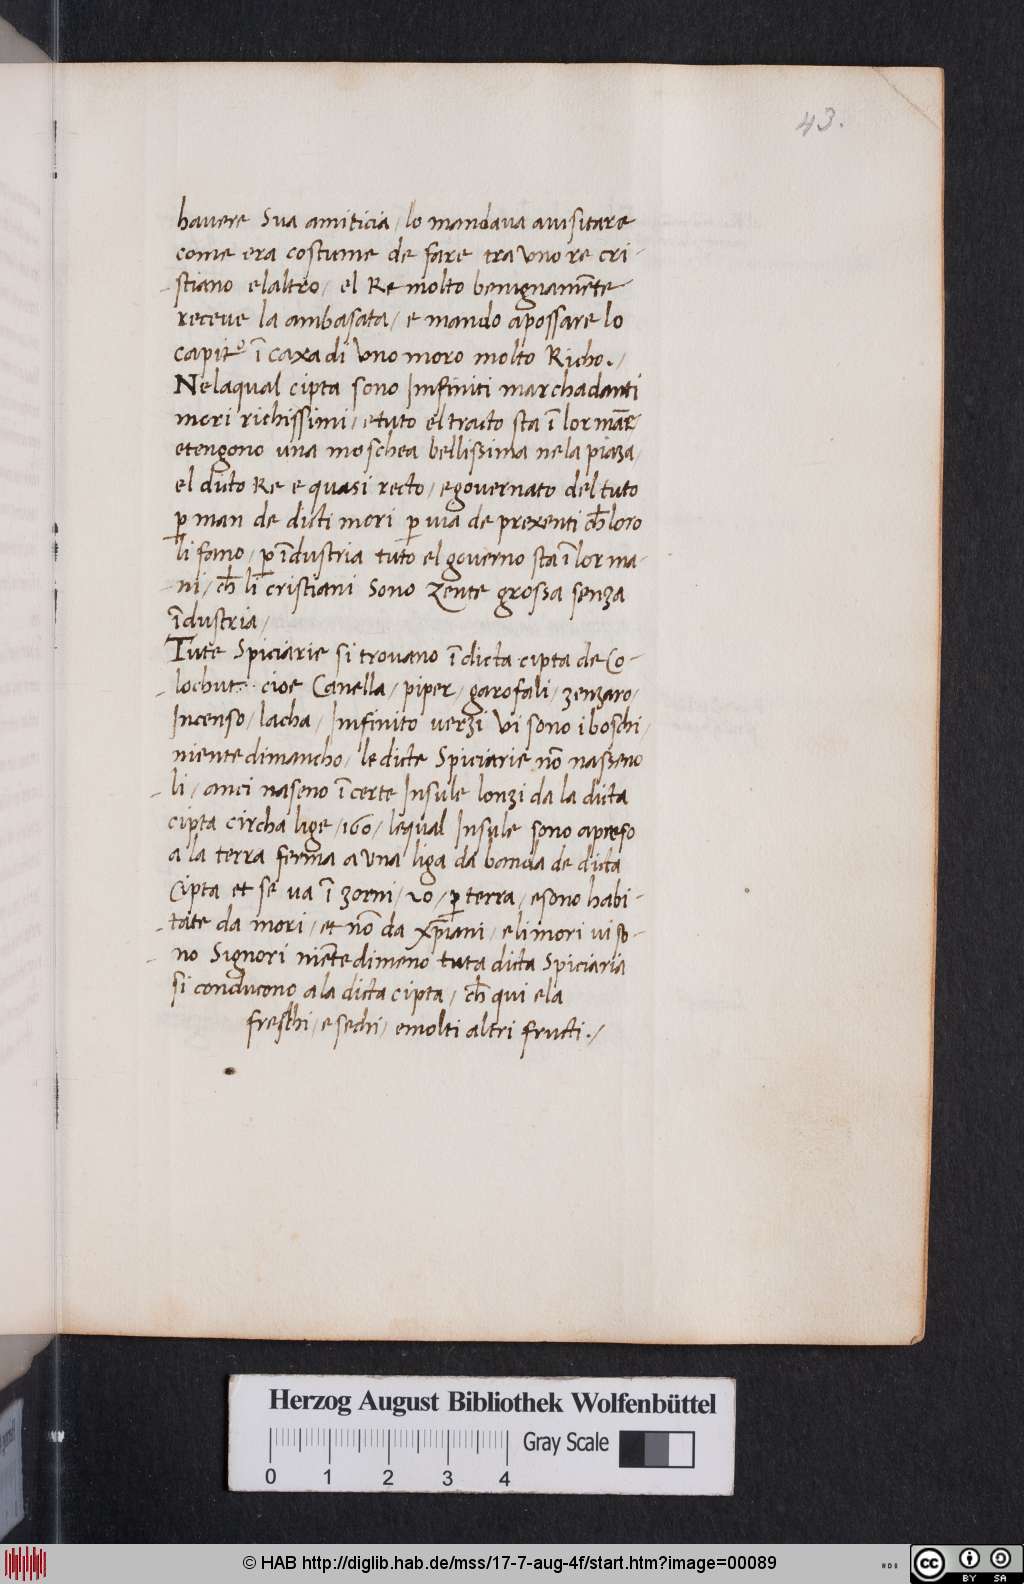 43.
havere sva amiticia / lo mandava avisitare
come era costume de fare tra vno re cri-
stiano elaltro / el Re molto benignamẽte
receve la ambasata / e mando apossare lo
capitº ĩ caxa di vno moro molto Richo. /
Nelaqual cipta sono Imfiniti marchadanti
mori richissimi / e tuto el tracto sta ĩ lor mãe
etengono una moschea bellissima nela piaza /
el dicto Re e quasi recto / egovernato del tuto
ꝑ man de dicti mori ꝑ via de prexenti ch̃ loro
li fano / ꝑ ĩdustria tuto el governo sta ĩ lor ma-
ni / ch̃ li cristiani sono Zente grossa senza
ĩdustria /
Tute Spiciarie si trovano ĩ dicta cipta de Co-
lochut cioe Canella / piper / garofali / zenzaro /
Incenso / lacha / Imfinito verzi vi sono i boschi /
niente dimancho / le dicte Spiciarie nõ nasseno
li / anci naseno ĩ certe Insule lonzi da la dicta
cipta circha lige / 160 / lequal Insule sono apreso
a la terra ferma a vna liga da banda de dicta
Cipta et se va ĩ zorni / 20 / ꝑ terra / e sono habi-
tate da mori / et nõ da xp̃iani / e li mori vi so-
no Signori niẽtedimeno tuta dicta Spiciaria
si conducono a la dicta cipta / ch̃ qui e la
freschi / e sechi / emolti altri fructi. /
Herzog August Bibliothek Wolfenbüttel
Gray Scale
0 1 2 3 4
© HAB http://diglib.hab.de/mss/17-7-aug-4f/start.htm?image=00089
cc BY SA